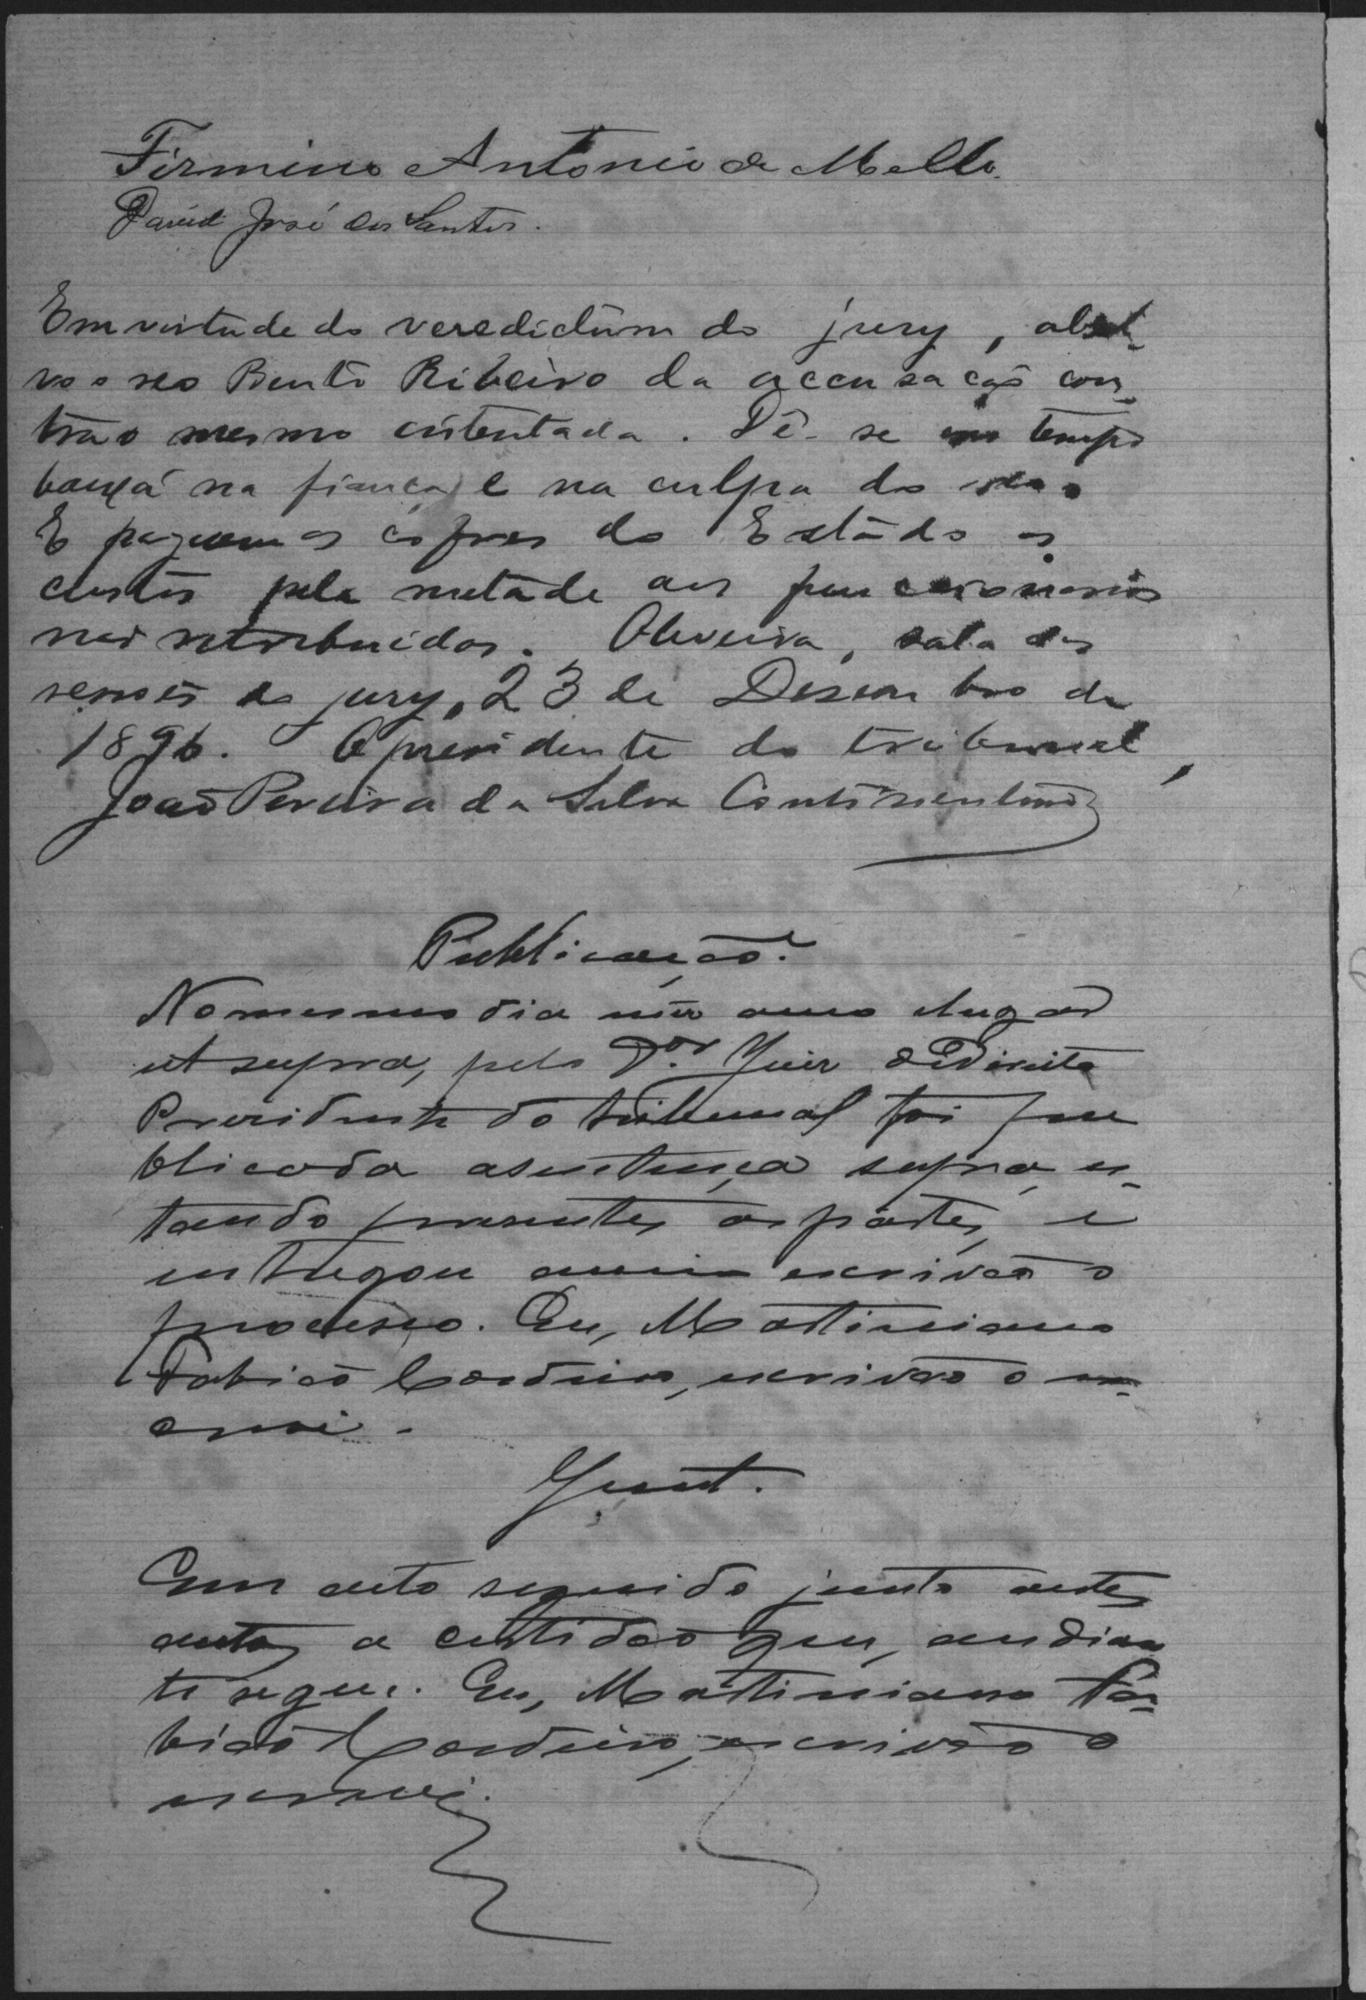 Firmino Antonio de Mello.
David José dos Santos.
Em virtude do veredictum do jury, absol-
vo o reo Bento Ribeiro da accusação con-
tra o mesmo intentada. Dê-se em tempo
baixa na fiança e na culpa do reo.
E paguem os cofres do Estado as
custas pela metade aos funccionarios
não retribuidos. Oliveira, sala das
sessões do jury, 23 de Desembro de
1896. O presidente do tribunal,
João Pereira da Silva Continentino
Publicação.
No mesmo dia mez anno e lugar
ut supra, pelo Dor. Juiz de Direito
Presidente do tribunal foi pu
blicada a sentença supra, es-
tando presentes as partes, e
entregou a mim escrivão o
processo. Eu, Martiniano
Fabião Cordeiro, escrivão o es-
crevi.
Junt.
Em acto seguido junto a estes
autos a certidão que, adian
te segue. Eu, Martiniano Fa-
bião Cordeiro, escrivão o
escrevi.